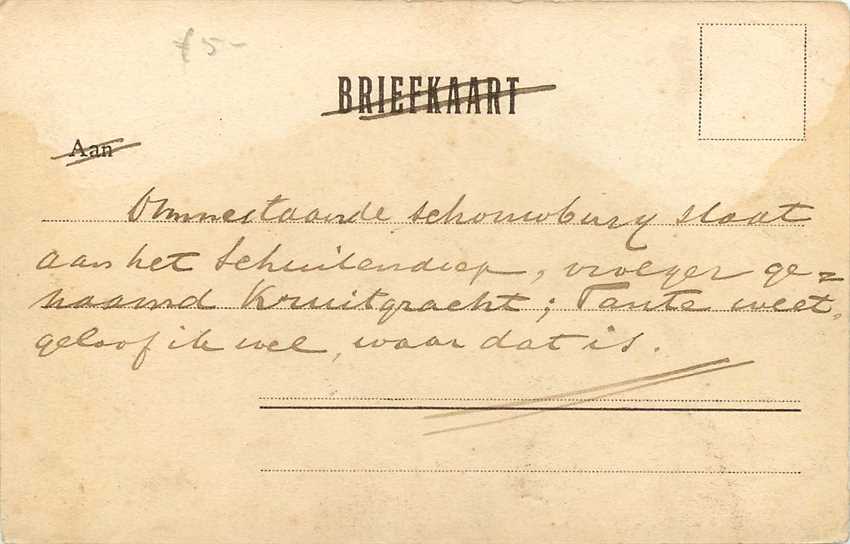 f 5-
BRIEFKAART
Aan
Ommestaande schouwburg staat
aan het Schuitendiep, vroeger ge=
naamd Kruitgracht; Tante weet,
geloof ik wel, waar dat is.